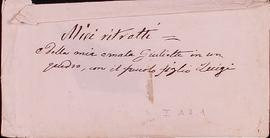 Miei ritratti =
e della mia amata Giulietta in un
quadro, con il piccolo figlio Luigi
I A 2 1